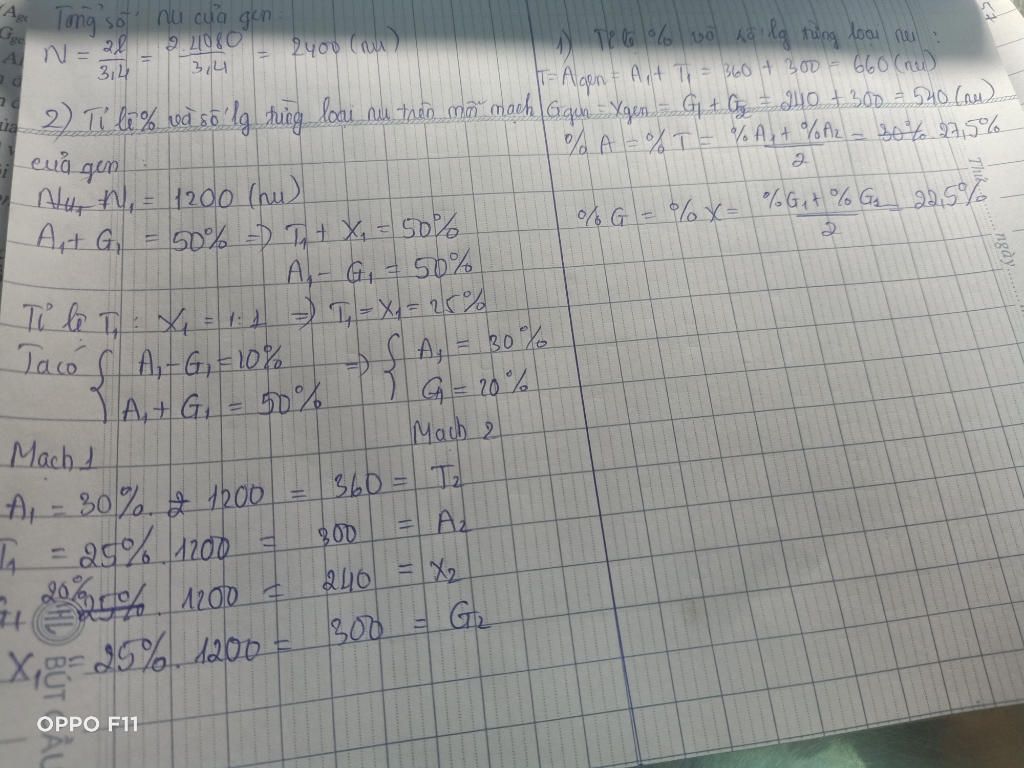 Tổng số nu của gen:
N = 2l/3,4 = 2.4080/3,4 = 2400 (nu)
2) Tỉ lệ % và số lg từng loại nu trên mỗi mạch
của gen:
N1 = 1200 (nu)
A1 + G1 = 50% => T1 + X1 = 50%
A1 - G1 = 50%
Tỉ lệ T1 : X1 = 1:1 => T1 = X1 = 25%
Ta có { A1 - G1 = 10% => { A1 = 30%
A1 + G1 = 50% G1 = 20%
Mạch 1 Mạch 2
A1 = 30%. 1200 = 360 = T2
T1 = 25%. 1200 = 300 = A2
20%
25%. 1200 = 240 = X2
X1 = 25%. 1200 = 300 = G2
1) Tỉ lệ % và số lg từng loại nu:
T = Agen = A1 + T1 = 360 + 300 = 660 (nu)
Ggen = Xgen = G1 + G2 = 240 + 300 = 540 (nu)
% A = % T = %A1 + %A2/2 = 30% 27,5%
% G = % X = %G1 + % G2/2 = 22,5%
BÚT
OPPO F11